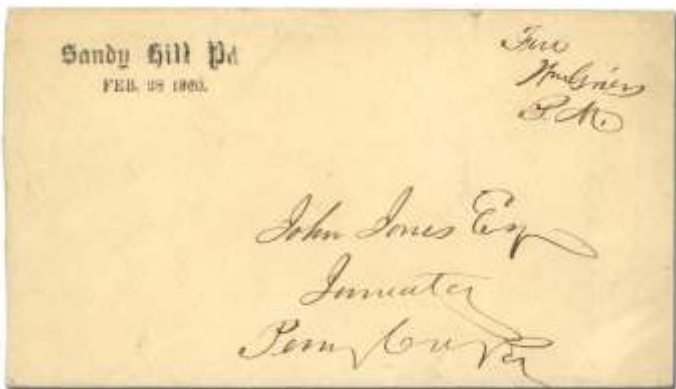 Sandy Hill Pa
FEB. 28 1860.
Free
Wm Grier
P. M.
John Jones Esq
Perry Co Pa